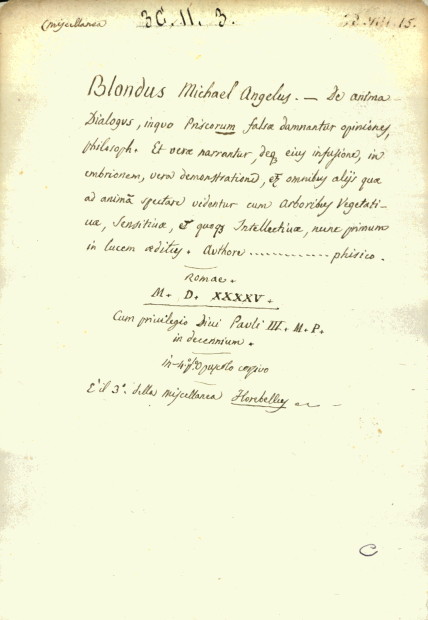 (miscellanea 3C. II. 3. 15.
Blondus Michael Angelus. — De anima
Dialogus, in quo Priscorum falsæ damnantur opiniones,
philosoph. Et veræ narrantur, deq. eius infusione, in
embrionem, vera demonstratione, et omnibus alijs quæ
ad animã spectare videntur cum Arboribus Vegetati-
uæ, Sensitiuæ, & quoq3 Intellectiuæ, nunc primum
in lucem æditus. Authore ............... phisico.
Romae.
M. D. XXXXV.
Cum privilegio Diui Pauli III. M. P.
in decennium.
in-4°
corsivo
È il 3°. della miscellanea Florebellus
C